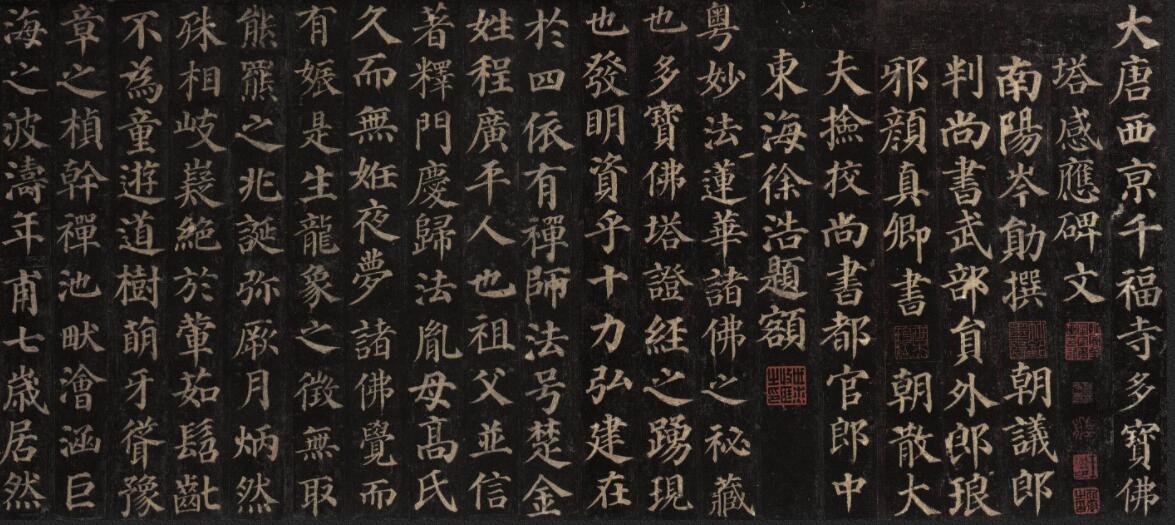 大唐西京千福寺多寶佛
塔感應碑文
南陽岑勛撰 朝議郎
判尚書武部員外郎琅
邪顏真卿書 朝散大
夫撿挍尚書都官郎中
東海徐浩題額
粵妙法蓮華諸佛之祕藏
也多寶佛塔證經之踴現
也發明資乎十力弘建在
於四依有禪師法号楚金
姓程廣平人也祖父並信
著釋門慶歸法胤母高氏
久而無姙夜夢諸佛覺而
有娠是生龍象之徵無取
熊羆之兆誕弥厥月炳然
殊相岐嶷絕於葷茹髫齔
不為童遊道樹萌牙聳豫
章之楨幹禪池畎澮涵巨
海之波濤年甫七歲居然